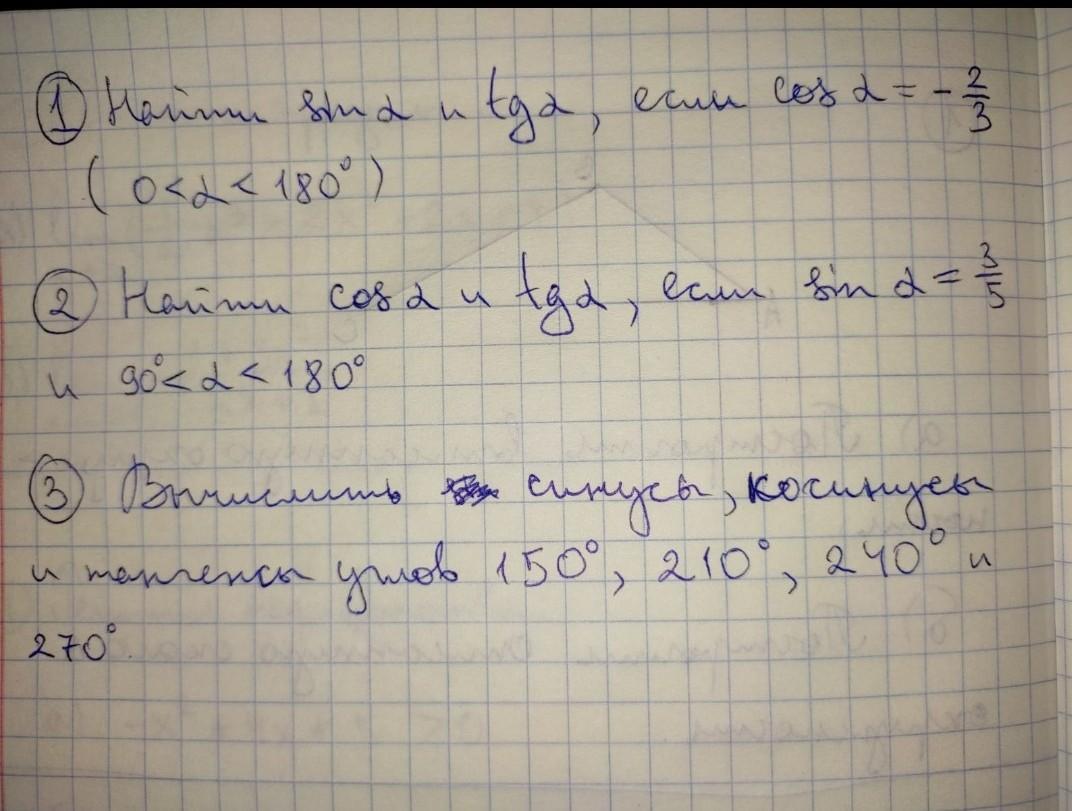 ① Найти sin α и tg α, если cos α = - 2/3
( 0 < α < 180° )
② Найти cos α и tg α, если sin α = 3/5
и 90° < α < 180°
③ Вычислить синусы, косинусы
и тангенсы углов 150°, 210°, 240° и
270°.